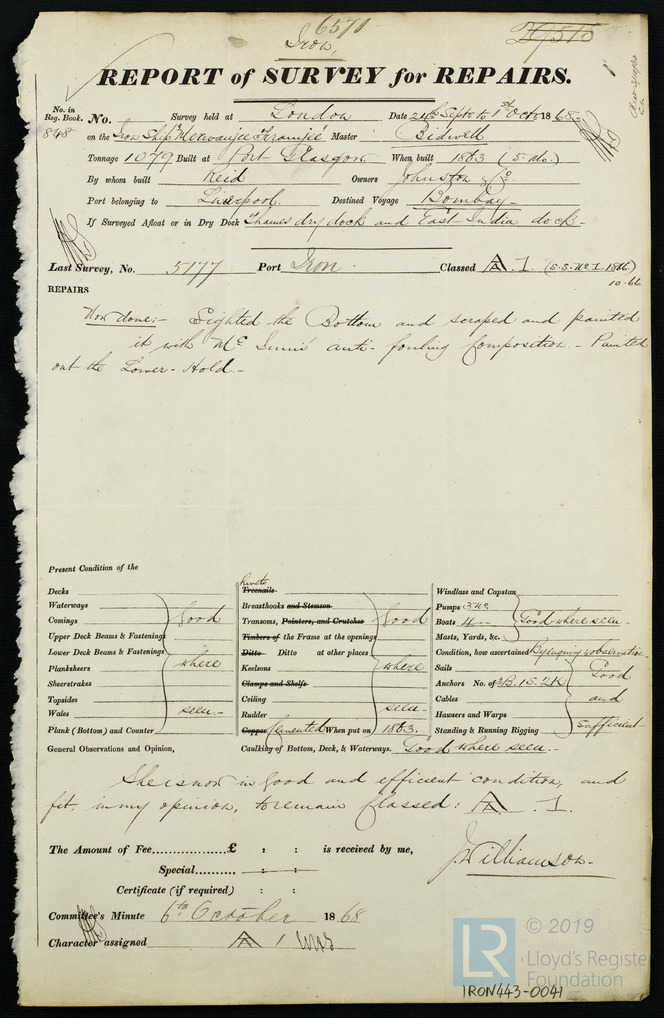 6571
Iron,
REPORT of SURVEY for REPAIRS.
No. in Reg. Book. 848 No. Survey held at London Date 21st Septr to 1st Octr 1868
on the Iron Ship "Merwanjee Framjee" Master Bidwell
Tonnage 1079 Built at Port Glasgow When built 1863 (5. Mo.)
By whom built Reid Owners Johnston & Co.
Port belonging to Liverpool. Destined Voyage Bombay-
If Surveyed Afloat or in Dry Dock Thames dry dock and East India dock-
Last Survey, No. 5177 Port Iron. Classed A. 1 (S.S. No 1. 1866.)
10.66
REPAIRS
Now done:- Sighted the Bottom and scraped and painted
it with Mc Innis' anti-fouling Composition.- Painted
out the Lower-Hold.-
Present Condition of the
Decks
Waterways
Comings
Upper Deck Beams & Fastenings
Lower Deck Beams & Fastenings
Planksheers
Sheerstrakes
Topsides
Wales
Plank (Bottom) and Counter
Good
where
seen.-
Rivets
Treenails
Breasthooks and Stemson
Transoms, Pointers, and Crutches
Timbers of the Frame at the openings
Ditto Ditto at other places
Keelsons
Clamps and Shelfs
Ceiling
Rudder
Copper Cemented When put on 1863.
Good
where
seen-
Windlass and Capstan
Pumps
Boats 4
Masts, Yards, &c.
Good where seen-
Condition, how ascertained By enquiry & observation
Sails
Anchors No. of 3B. 1S. 2K
Cables
Hawsers and Warps
Standing & Running Rigging
Good
and
sufficient-
General Observations and Opinion, Caulking of Bottom, Deck, & Waterways. Good where seen.-
She is now in good and efficient condition, and
fit, in my opinion, to remain Classed: A. 1.
The Amount of Fee................£ : : is received by me,
Special.......... : :
Certificate (if required) : :
J. Williamson-
Committee's Minute 6th October 1868
Character assigned A 1
LR
© 2019
Lloyd's Register
Foundation
IRON443-0041